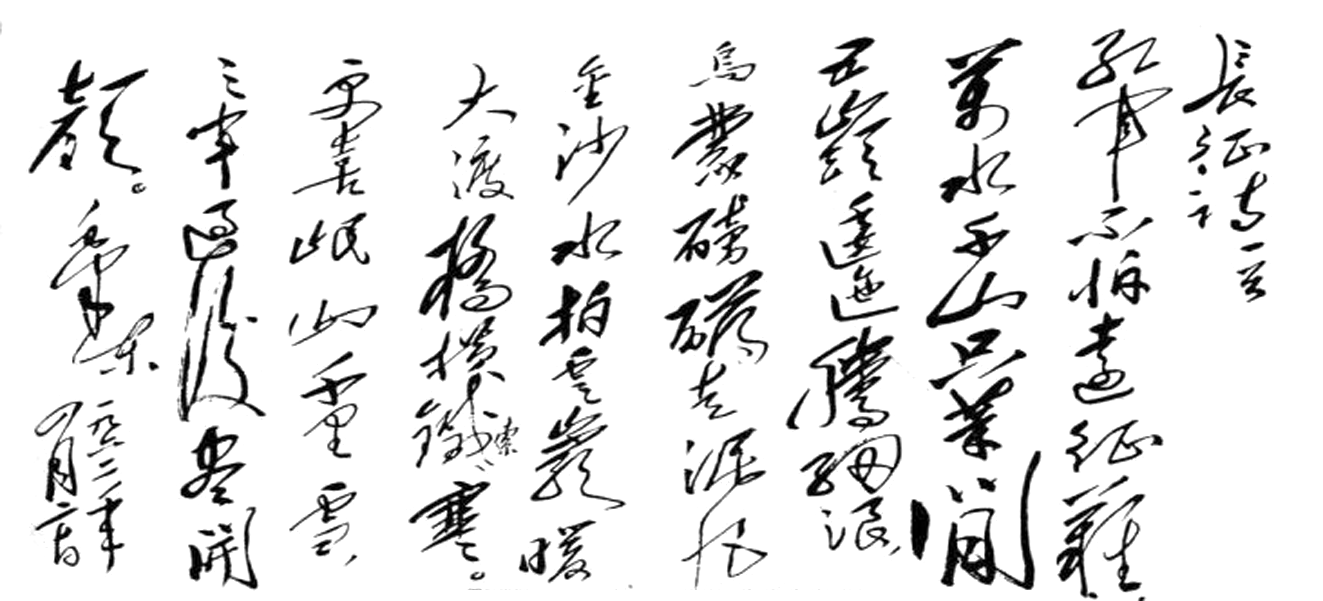 長征詩一首
紅軍不怕遠征難,
萬水千山只等閒
五嶺逶迤騰細浪,
烏蒙磅礴走泥丸
金沙水拍雲巖暖
大渡橋橫鐵索寒。
更喜岷山千里雪,
三軍過後盡開
顏。毛澤東
一九六二年
四月二十日